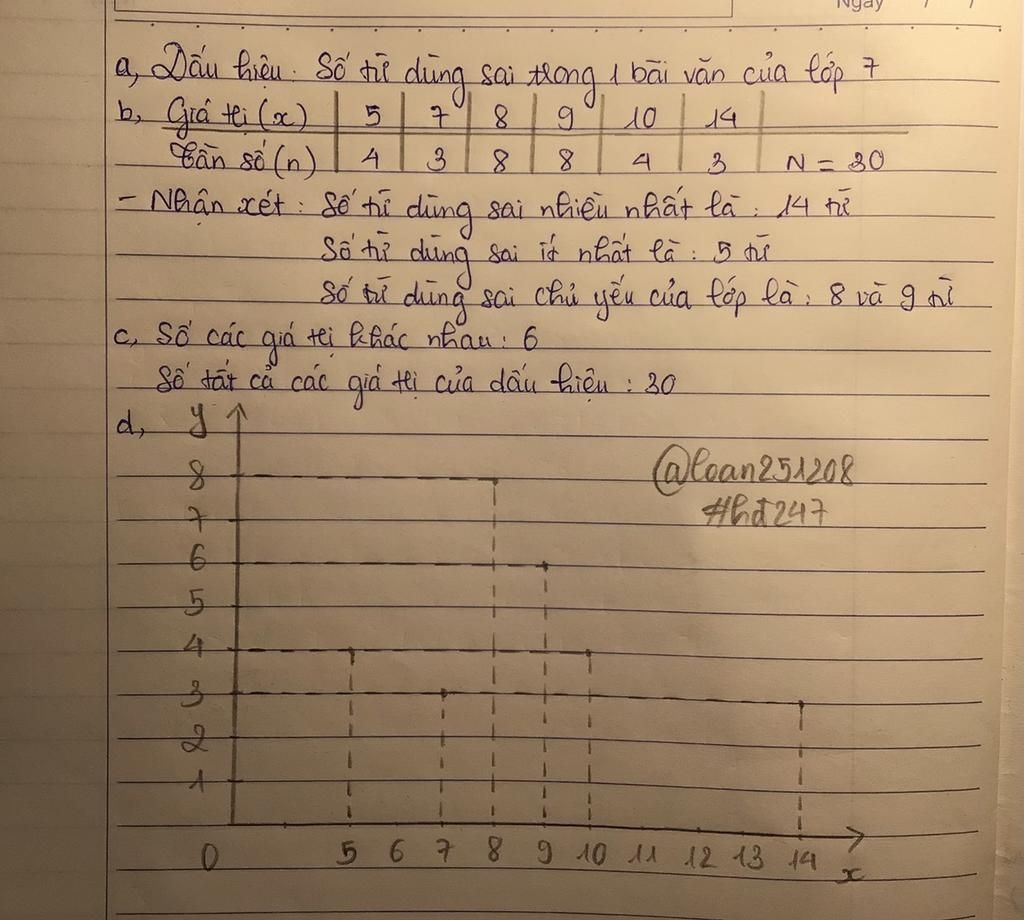 Ngày / /
a, Dấu hiệu: Số từ dùng sai trong 1 bài văn của lớp 7
b, Giá trị (x) 5 7 8 9 10 14
Tần số (n) 4 3 8 8 4 3 N = 30
- Nhận xét: Số từ dùng sai nhiều nhất là: 14 từ
Số từ dùng sai ít nhất là: 5 từ
Số từ dùng sai chủ yếu của lớp là: 8 và 9 từ
c, Số các giá trị khác nhau: 6
Số tất cả các giá trị của dấu hiệu: 30
d, y
8
@loan251208
7
#hđ247
6
5
4
3
2
1
0 5 6 7 8 9 10 11 12 13 14 x